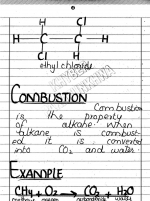 H Cl
H C C H
Cl H
ethyl chloride
COMBUSTION
Combustion
is the property
of alkane. when
alkane is combust-
ed it is converted
into CO2 and water.
EXAMPLE
CH4 + O2 → CO2 + H2O